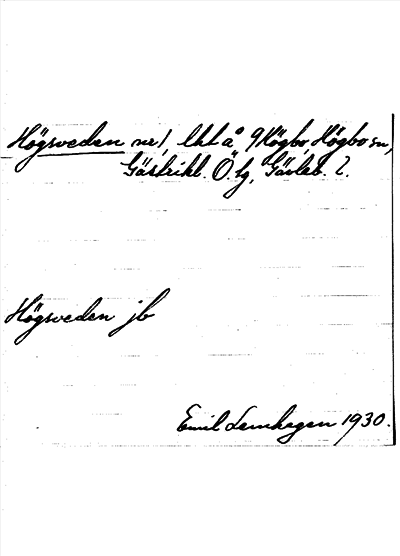 Högsveden nr 1, lht å 9 Högbo, Högbo sn,
Gästrikl. Ö. tg, Gävleb. l.
Högsveden jb
Emil Lemhagen 1930.